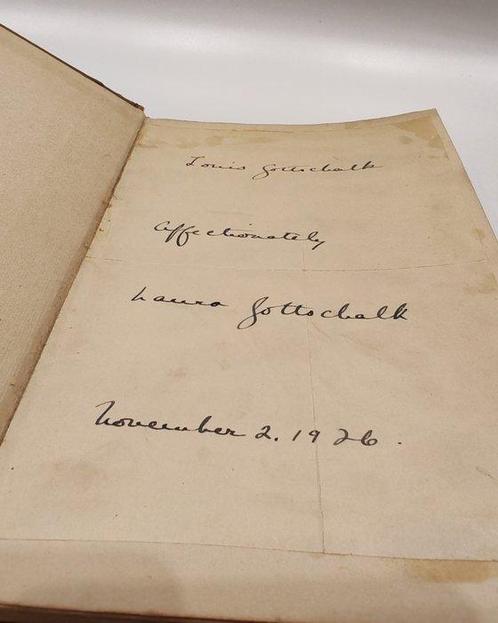 Louis Gottschalk
affectionately
Laura Gottschalk
November 2. 1926.